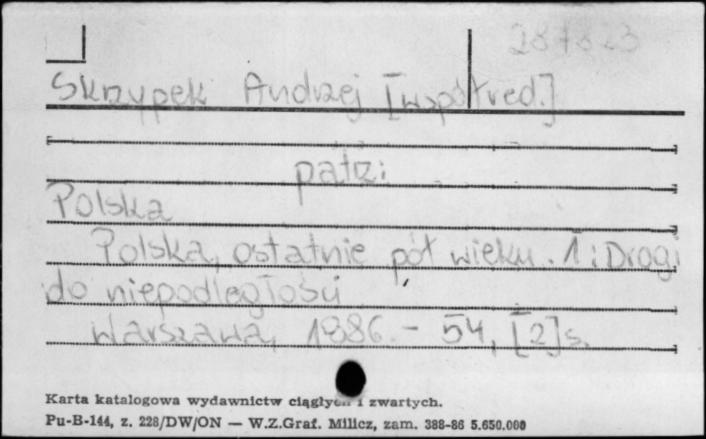 287823
Skrzypek Andrzej [współred.]
patrz:
Polska
Polska, ostatnie pół wieku. 1: Drogi
do niepodległości
Warszawa, 1986. - 54, [2] s.
Karta katalogowa wydawnictw ciągłych i zwartych.
Pu-B-144, z. 228/DW/ON — W.Z.Graf. Milicz, zam. 388-86 5.650.000